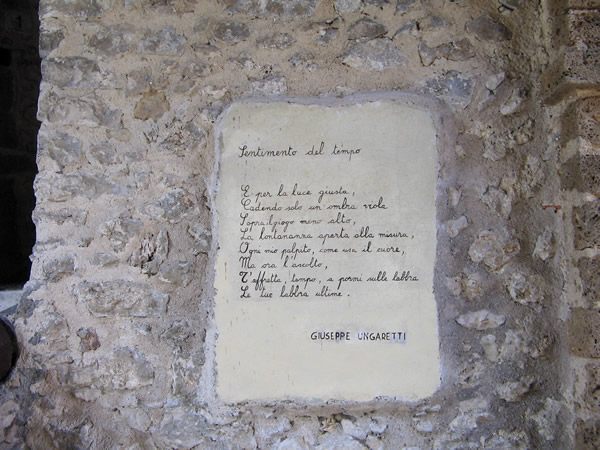 Sentimento del tempo
E per la luce giusta,
Cadendo solo un'ombra viola
Sopra'l giogo meno alto,
La lontananza aperta alla misura,
Ogni mio palpito, come usa il cuore,
Ma ora l'ascolto,
T'affretta, tempo, a pormi sulle labbra
Le tue labbra ultime.
GIUSEPPE UNGARETTI